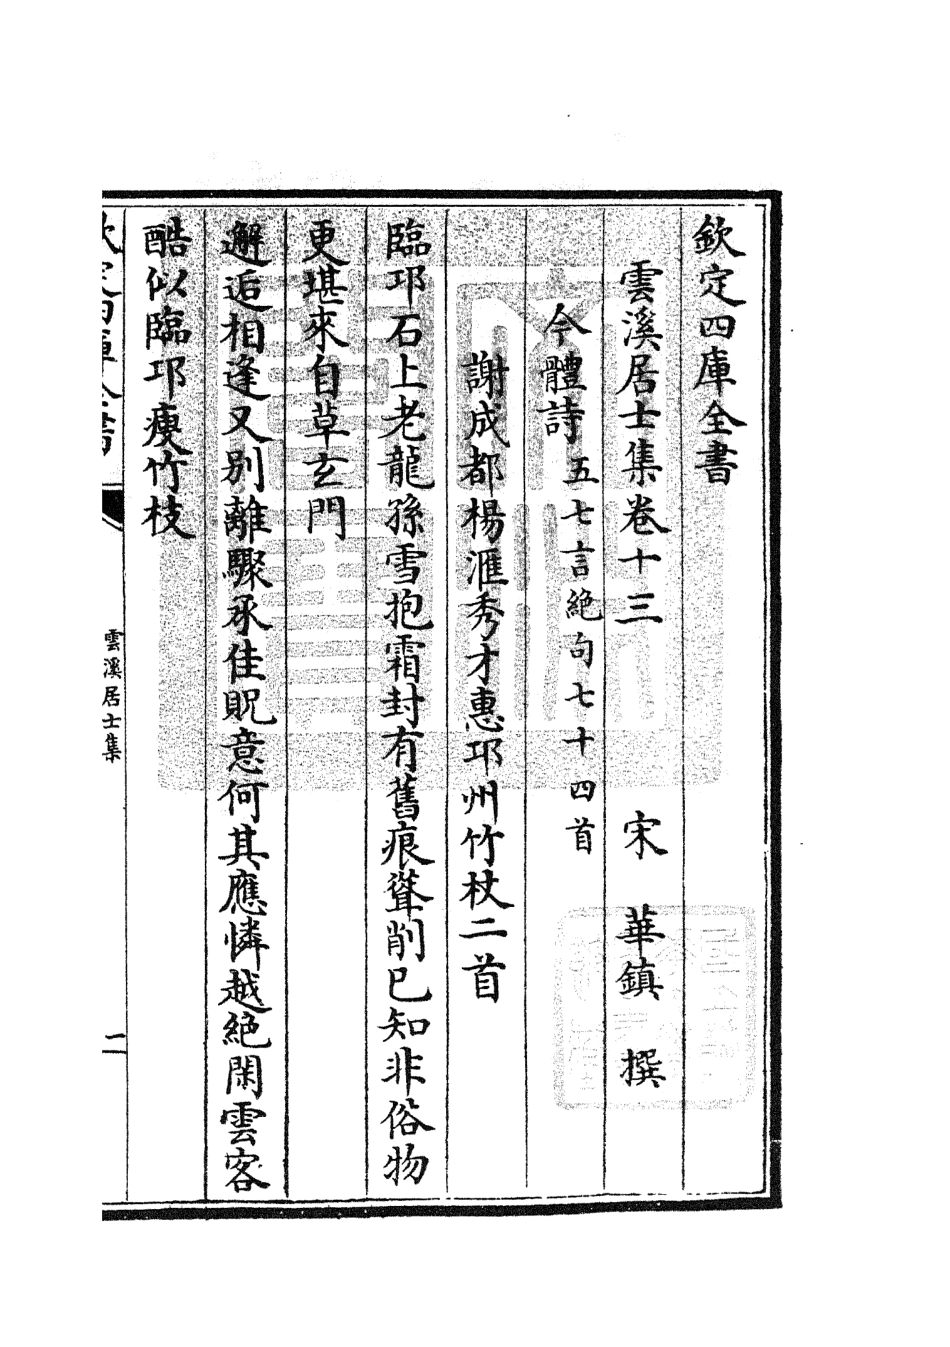 欽定四庫全書
雲溪居士集卷十三　宋　華鎮　撰
今體詩　五七言絶句七十四首
謝成都楊滙秀才惠邛州竹杖二首
臨邛石上老龍孫雪抱霜封有舊痕聳削已知非俗物
更堪來自草玄門
邂逅相逢又别離驟承佳貺意何其應憐越絶閑雲客
酷似臨邛瘦竹枝
雲溪居士集